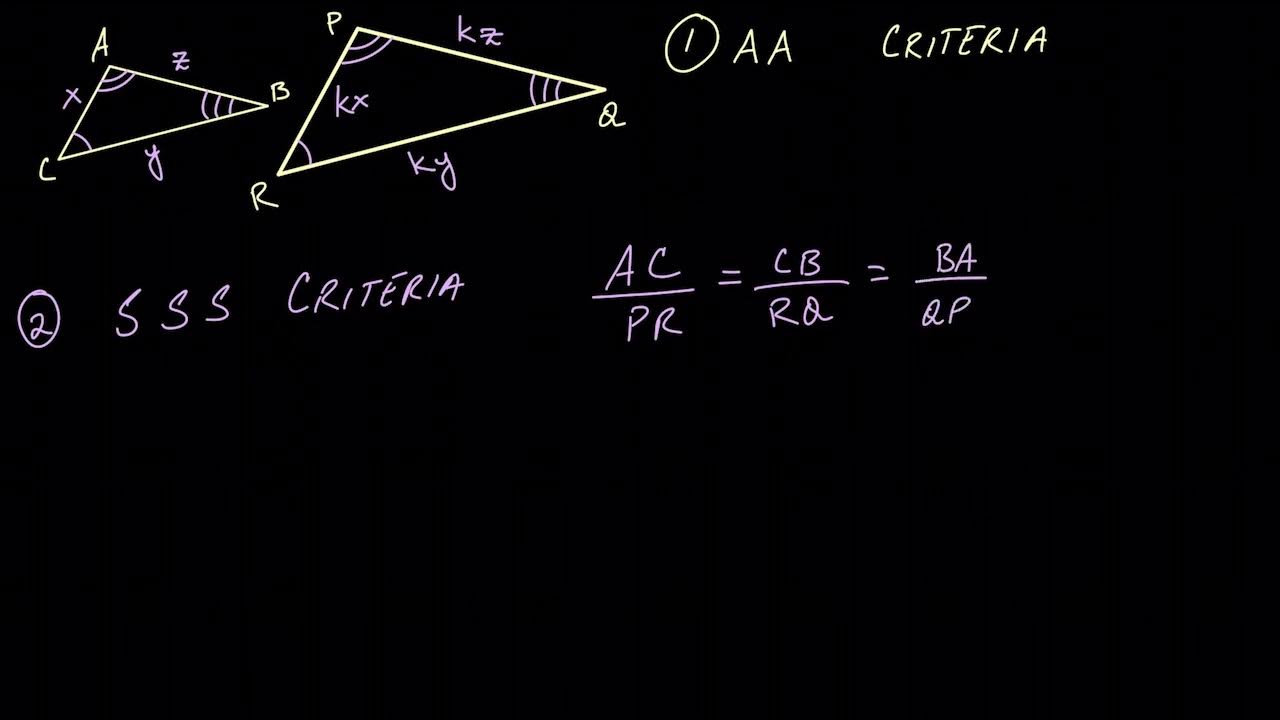 A z B x C y
P kz kx Q R ky
① AA CRITERIA
② SSS CRITERIA AC/PR = CB/RQ = BA/QP